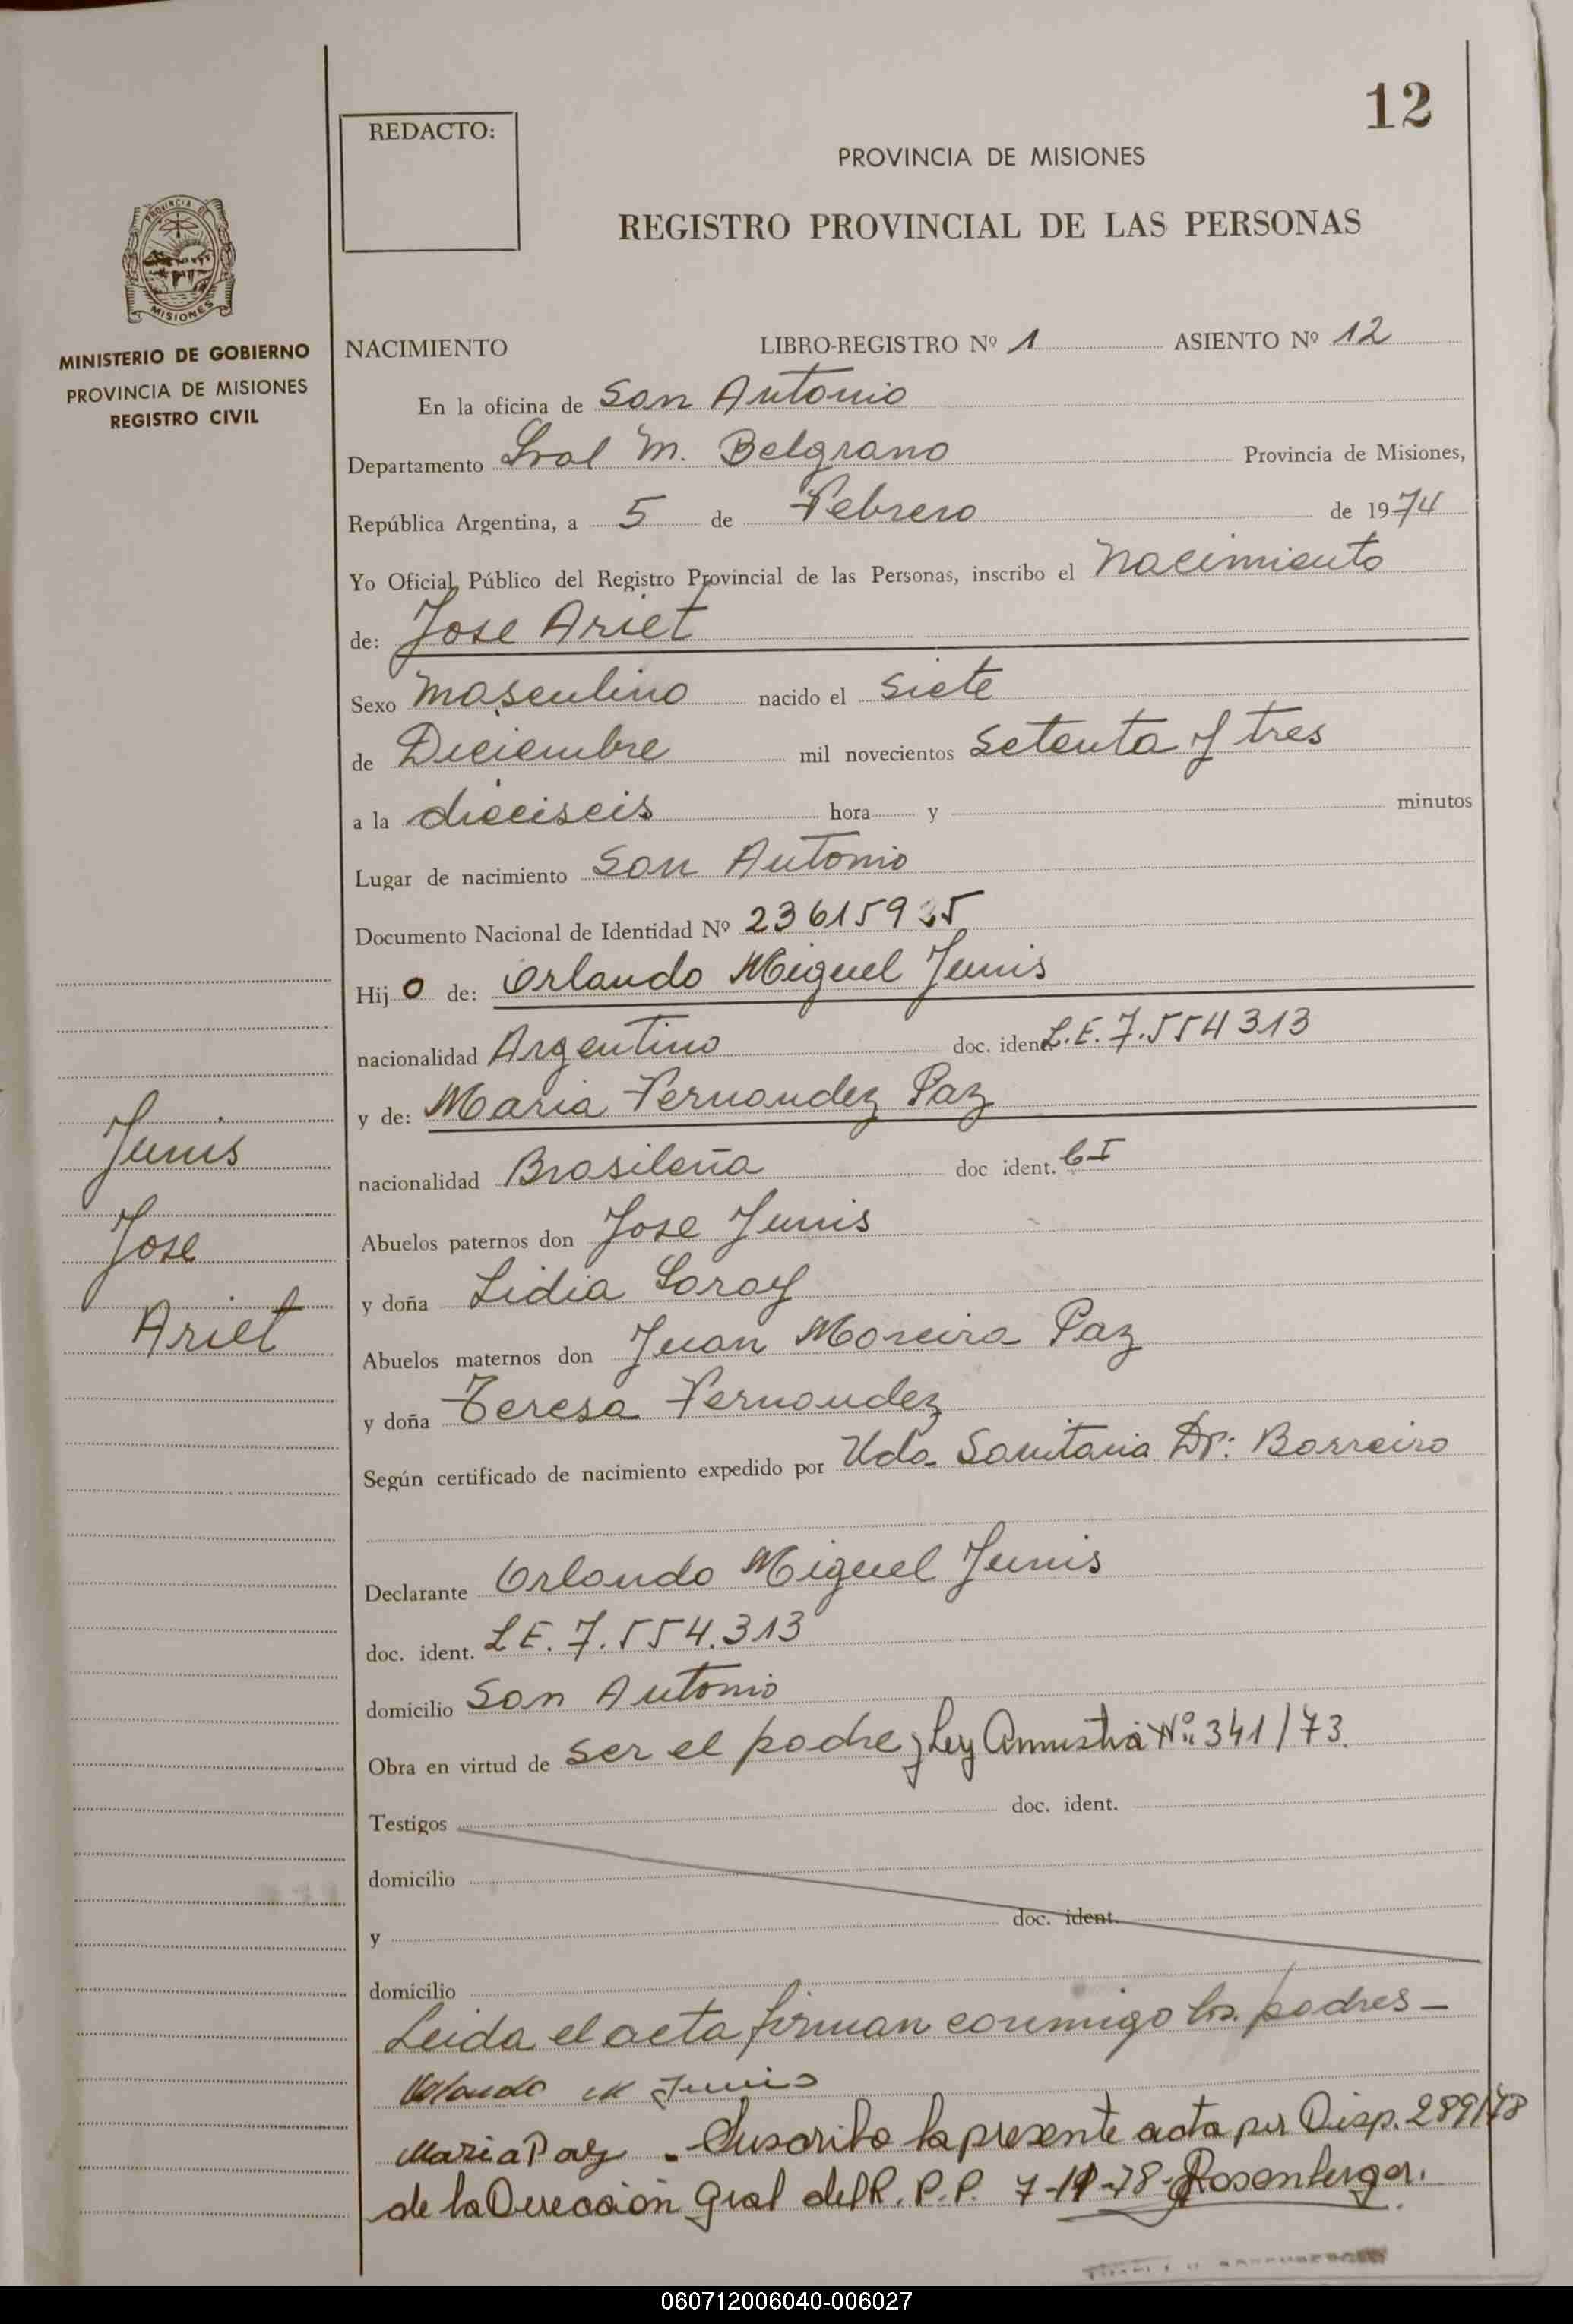 12
REDACTO:
PROVINCIA DE MISIONES
REGISTRO PROVINCIAL DE LAS PERSONAS
PROVINCIA DE
MISIONES
MINISTERIO DE GOBIERNO
PROVINCIA DE MISIONES
REGISTRO CIVIL
NACIMIENTO LIBRO-REGISTRO Nº 1 ASIENTO Nº 12
En la oficina de San Antonio
Departamento Gral M. Belgrano Provincia de Misiones,
República Argentina, a 5 de Febrero de 1974
Yo Oficial Público del Registro Provincial de las Personas, inscribo el Nacimiento
de: Jose Ariet
Sexo Masculino nacido el Siete
de Diciembre mil novecientos Setenta y tres
a la dieciseis hora y minutos
Lugar de nacimiento San Antonio
Documento Nacional de Identidad Nº
Hij o de: Orlando Miguel Junis
nacionalidad Argentino doc. ident. L.E. 7.554313
y de: Maria Fernandez Paz
nacionalidad Brasileña doc ident. C-I
Abuelos paternos don Jose Junis
y doña Lidia
Abuelos maternos don Juan Moreira Paz
y doña Teresa Fernandez
Según certificado de nacimiento expedido por Uda. Sanitaria Dr: Barreiro
Declarante Orlando Miguel Junis
doc. ident. L E. 7.554.313
domicilio San Antonio
Obra en virtud de ser el padre y Ley Amnistia Nº: 341/73.
Testigos doc. ident.
domicilio
y doc. ident.
domicilio
Leida el acta firman conmigo los padres -
Orlando M Junis
Maria Paz . Suscribo la presente acta por Disp. 289/78
de la Dirección Gral del R. P. P. 7-11-78- Rosenberger.
Junis
Jose
Ariet
060712006040-006027